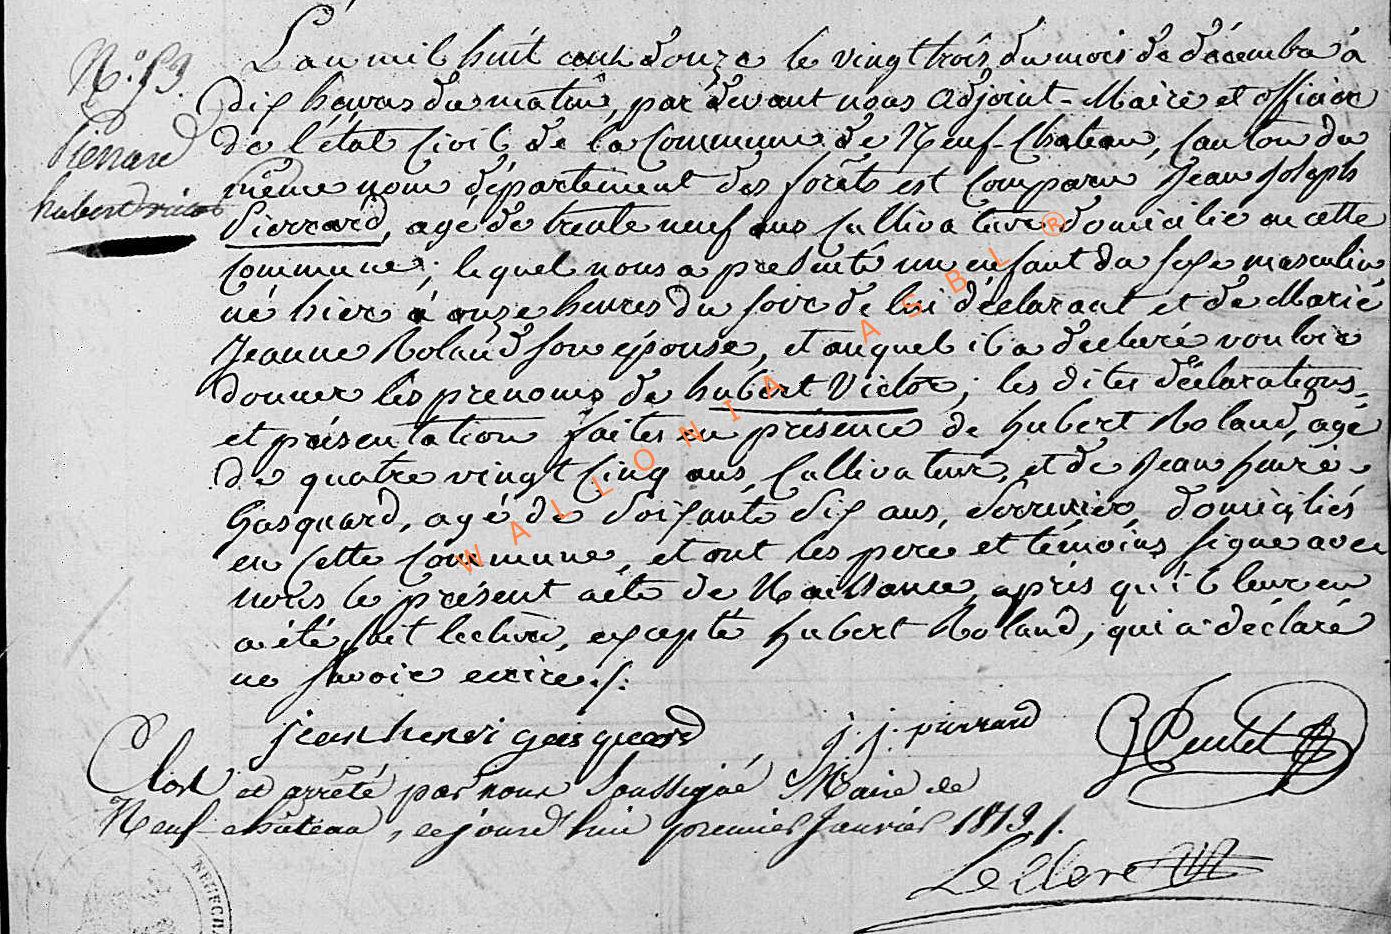 N.° 53.
Pierrard
hubert victor
L'an mil huit cent douze le vingt trois du mois de décembre à
dix heures du matin, par devant nous Adjoint-Maire et officier
de l'état Civil de la Commune de Neuf-Chateau, Canton du
même nom département des forêts est Comparu Jean Joseph
Pierrard, agé de trente neuf ans Cultivateur domicilié en cette
Commune; lequel nous a présenté un enfant du sexe masculin
né hier à onze heures du soir de lui déclarant et de Marie
Jeanne Roland son épouse, et auquel il a declaré vouloir
donner les prenoms de hubert Victor; les dites déclarations
et présentation faites en présence de hubert Roland, agé
de quatre vingt Cinq ans, Cultivateur, et de Jean henré
Gasquard, agé de Soixante Six ans, Serrurier, domiciliés
en Cette Commune, et ont les pere et témoins signe avec
nous le présent acte de Naissance, après qu'il leur en
a été fait lecture, excepté hubert Roland, qui a déclaré
ne savoir ecrire./.
jean henri gasquard
j. j. pierrard
Clos et arrêté par nous Soussigné Maire de
Neuf-château, cejourd'hui premier Janvier 1813./.
LeClerc
WALLONIA ASBL ®